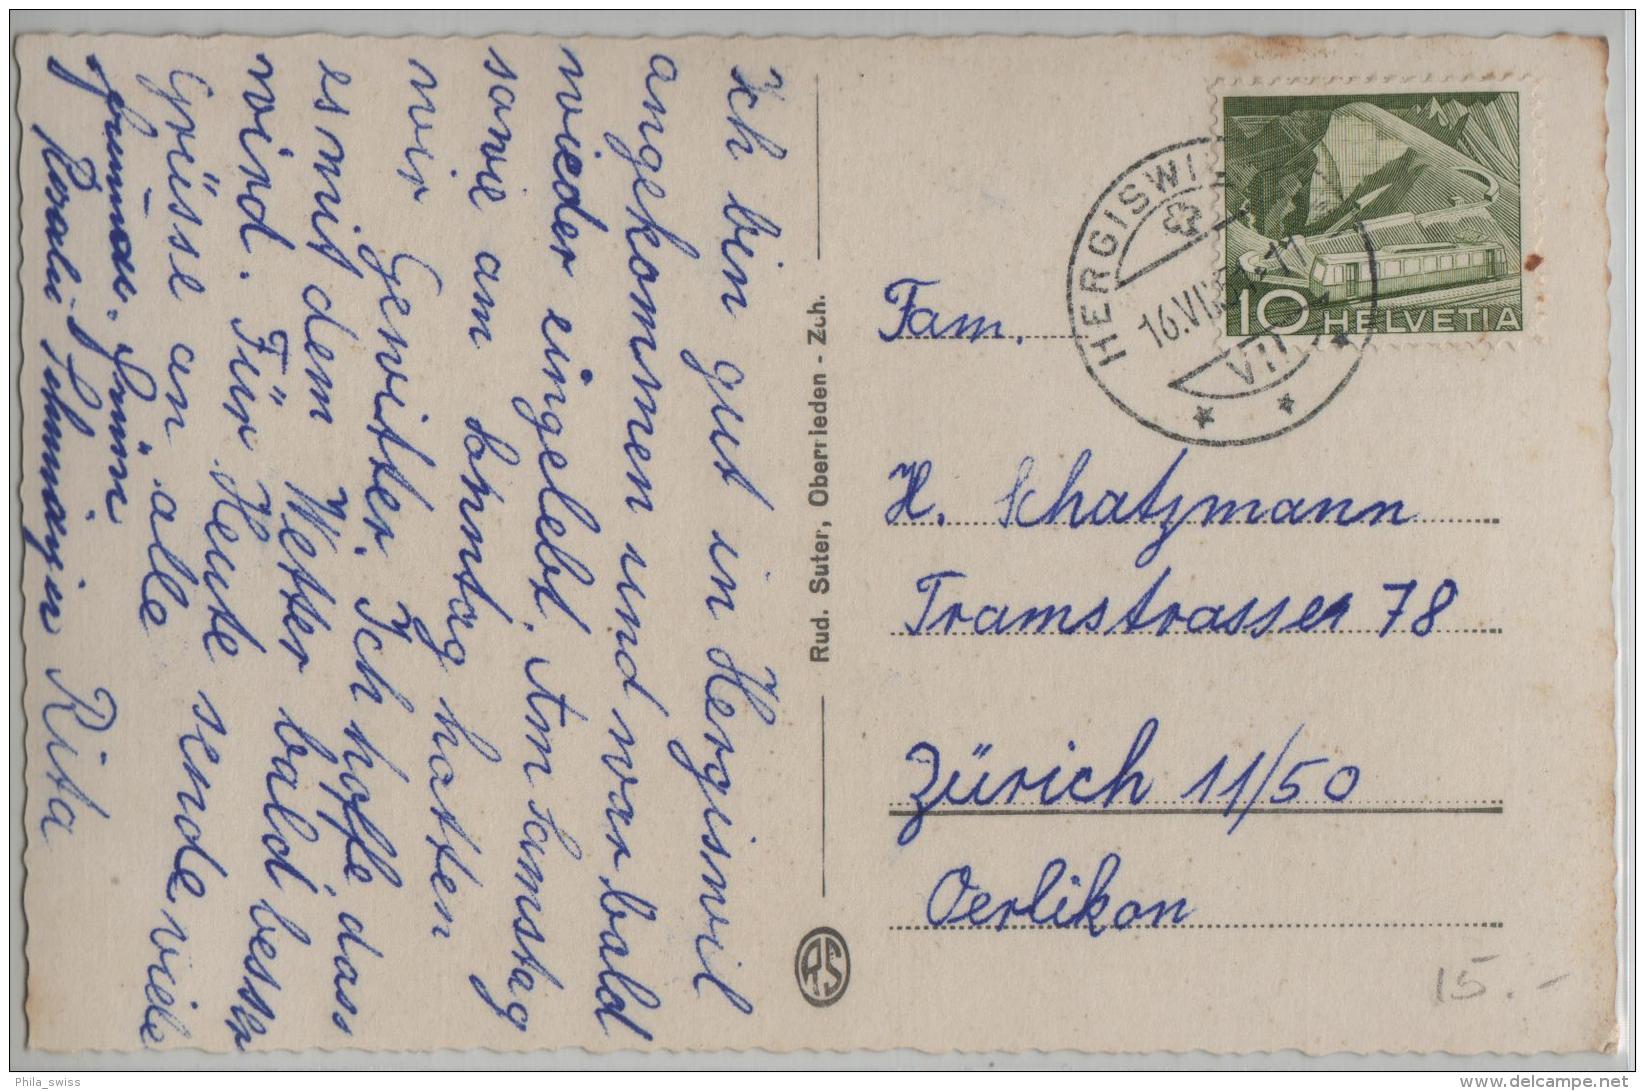 Ich bin gut in Hergiswil
angekommen und war bald
wieder eingelebt. Am Samstag
sowie am Sonntag hatten
wir Gewitter. Ich hoffe dass
es mit dem Wetter bald besser
wird. Für Heute sende viele
Grüsse an alle
Rosalie Rita
Rud. Suter, Oberrieden - Zch.
RS
HERGISWIL
16.VII
VII
10 HELVETIA
Fam.
H. Schatzmann
Tramstrasse 78
Zürich 11/50
Oerlikon
15.-
Phila_swiss
delcampe.net